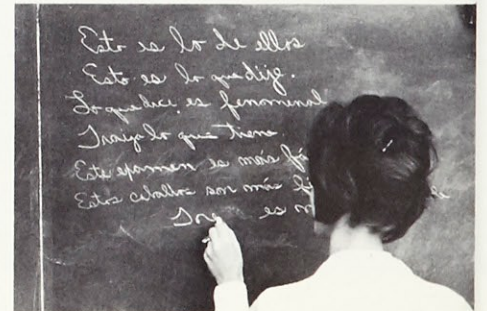 Esto es lo de ellos
Esto es lo que dije.
Lo que dice, es fenomenal
Traiga lo que tiene.
Este examen es más fá
Estos caballos son más
es